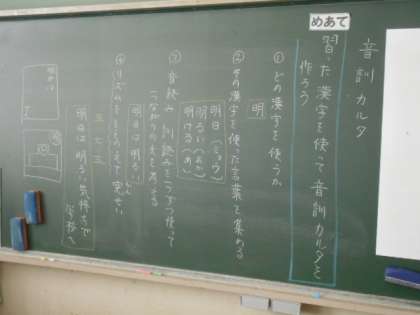 音訓カルタ
めあて
習った漢字を使って音訓カルタを
作ろう
①どの漢字を使うか
明
②その漢字を使った言葉を集める
明日(ミョウ)
明るい(あか)
明ける(あ)
③音読み 訓読みを一つずつ使って
つながりのある文を
④リズムをととのえて完せい
明日は明るい
五 七 五
明日は 明るい気持ちで
学校へ